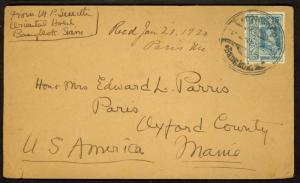 From M P Smith
Oriental Hotel
Bangkok Siam
Recd Jan 21, 1920
Paris Me
Hon Mrs Edward L. Parris
Paris
Oxford County
U S America Maine